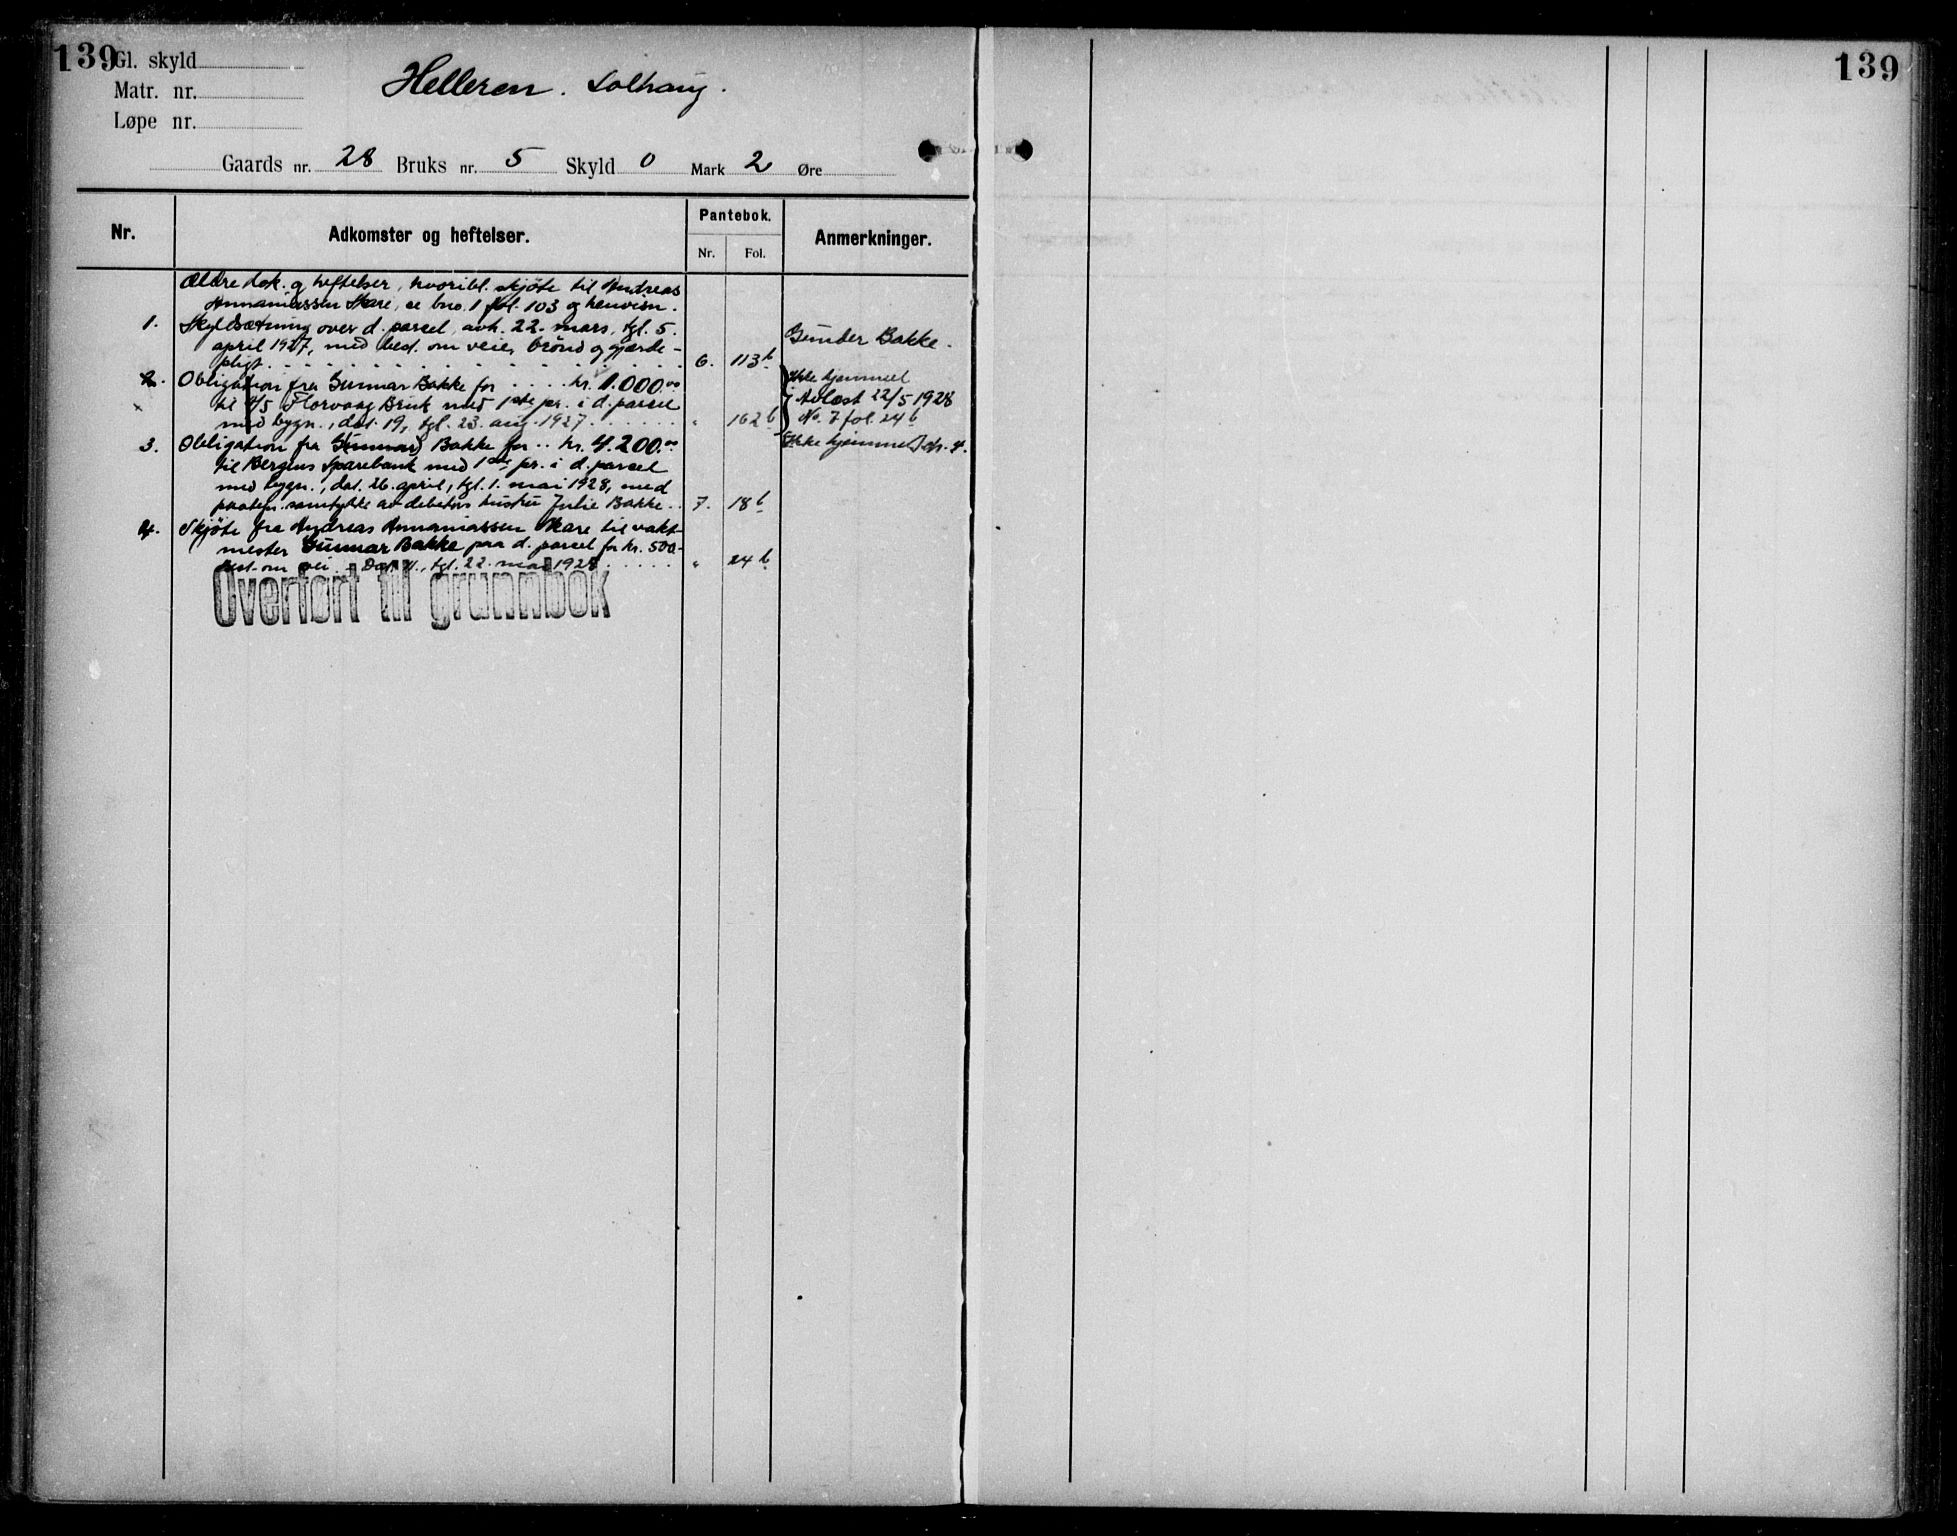 139
139
Gl. skyld
Matr. nr.
Løpe nr.
Helleren. Solhaug.
Gaards nr. 28 Bruks nr. 5 Skyld 0 Mark 2 Øre
Nr. Adkomster og heftelser. Pantebok. Anmerkninger.
Nr. Fol.
Ældre dok. og heftelser, hvoribl. skjøte til Andreas
Annaniassen Skare, se bno. 1 fol. 103 og henvisn.
1. Skyldsætning over d. parcel, avh. 22. mars, tgl. 5.
april 1927, med best. om veie, brønd og gjærde-
pligt 6. 113b Gunder Bakke.
2. Obligation fra Gunnar Bakke for kr. 1.000.00 Ikke hjemmel
til A/S Florvaag Bruk med 1ste pr. i d. parcel Avlæst 22/5 1928
med bygn., dat. 19, tgl. 23. aug. 1927 " 162b No. 7 fol. 24b
3. Obligation fra Gunnar Bakke for kr. 4.200.00 Ikke hjemmel
til Bergens Sparebank med 1ste pr. i d. parcel
med bygn., dat. 26. april, tgl. 1. mai 1928, med
paategn. samtykke av debitors hustru Julie Bakke 7. 18b
4. Skjøte fra Andreas Annaniassen Skare til vakt-
mester Gunnar Bakke paa d. parcel for kr. 500.-
best. om vei. - Dat. 11., tgl. 22. mai 1928 " 24b
Overført til grunnbok